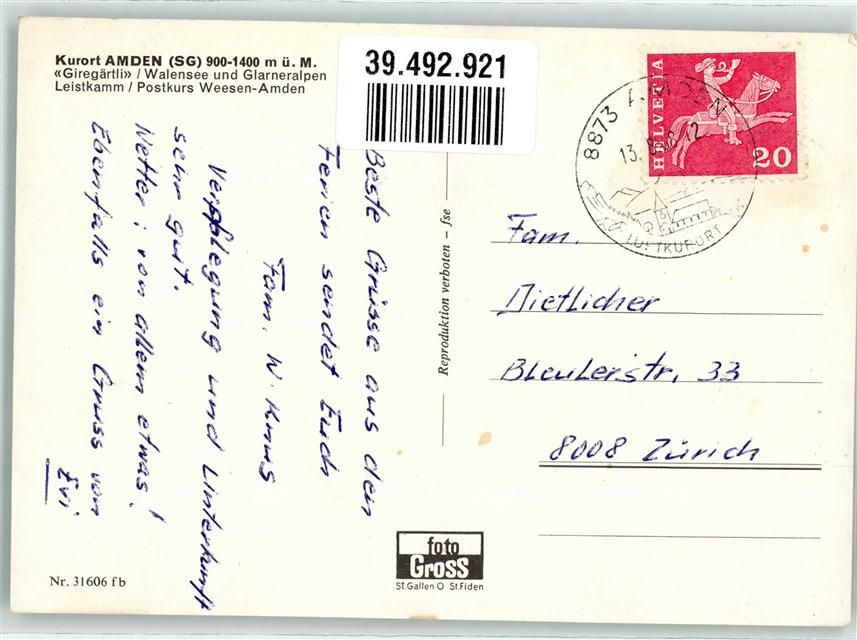 Kurort AMDEN (SG) 900-1400 m ü. M.
«Giregärtli» / Walensee und Glarneralpen
Leistkamm / Postkurs Weesen-Amden
39.492.921
HELVETIA
20
8873 AMDEN
13. 8. 68 12
LUFTKURORT
Beste Grüsse aus den
Ferien sendet Euch
Fam. W. Knus
Verpflegung und Unterkunft
sehr gut.
Wetter: von allem etwas!
Ebenfalls ein Gruss von
Evi
Reproduktion verboten – fse
Fam.
Dietlicher
Bleulerstr. 33
8008 Zürich
foto
Gross
St.Gallen O St.Fiden
Nr. 31606 fb